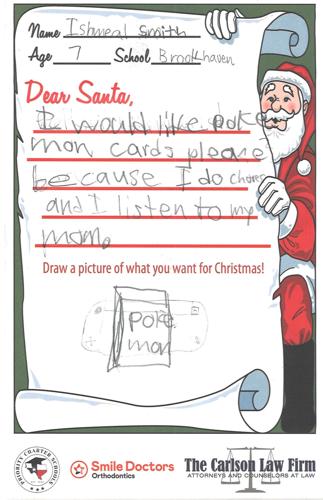 Name Ishmeal Smith
Age 7 School Brookhaven
Dear Santa,
I would like poke
mon cards please
because I do chores
and I listen to my
mom.
Draw a picture of what you want for Christmas!
Poke
mon
PRIORITY CHARTER SCHOOLS
Smile Doctors
Orthodontics
The Carlson Law Firm
ATTORNEYS AND COUNSELORS AT LAW